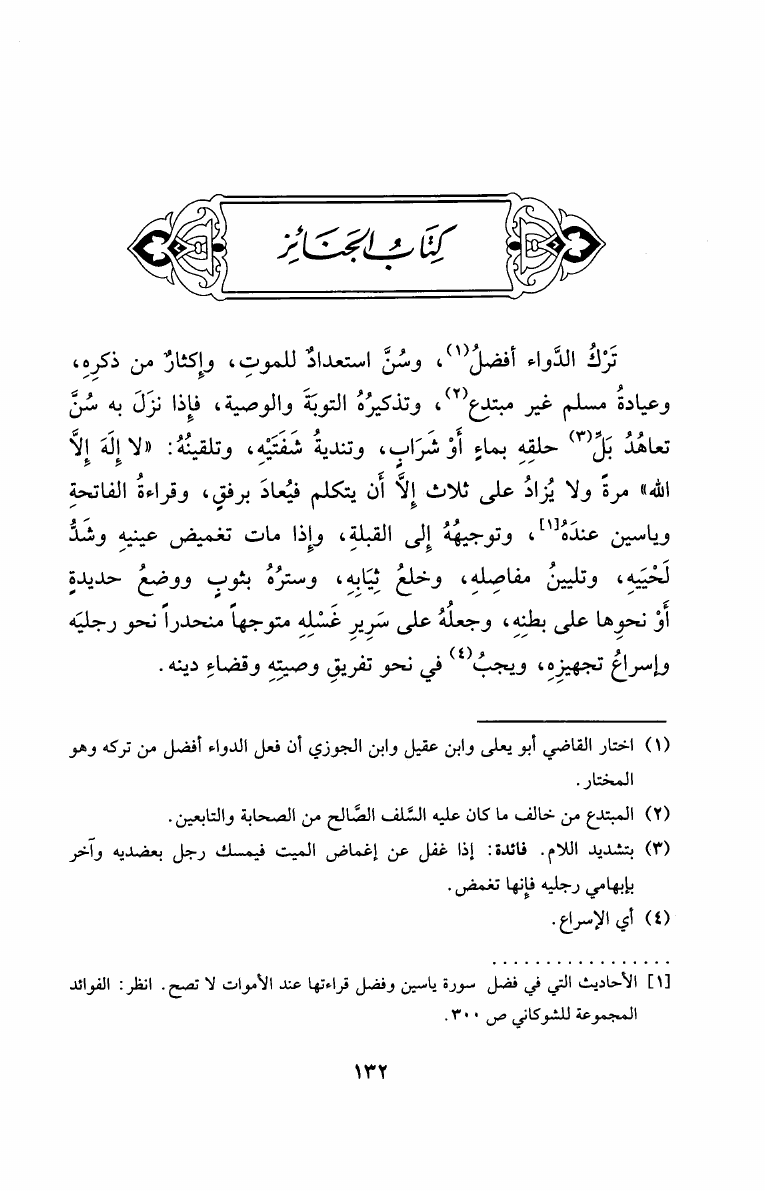 كِتَابُ الجَنَائِز
تَرْكُ الدَّواءِ أفضلُ(١)، وسُنَّ استعدادٌ للموتِ، وإكثارٌ من ذكرِهِ،
وعيادةُ مسلم غير مبتدع(٢)، وتذكيرُهُ التوبَةَ والوصية، فإذا نزَلَ به سُنَّ
تعاهُدُ بَلِّ(٣) حلقِهِ بماءٍ أَوْ شَرَابٍ، وتنديةُ شَفَتَيْهِ، وتلقينُهُ: «لا إلَهَ إلاَّ
الله» مرةً ولا يُزادُ على ثلاث إلاَّ أن يتكلم فيُعادَ برفقٍ، وقراءةُ الفاتحةِ
وياسين عندَهُ[١]، وتوجيهُهُ إلى القبلةِ، وإذا مات تغميض عينيهِ وشَدُّ
لَحْيَيهِ، وتليينُ مفاصِلهِ، وخلعُ ثِيَابِهِ، وسترُهُ بثوبٍ ووضعُ حديدةٍ
أوْ نحوِها على بطنِهِ، وجعلُهُ على سَرِيرِ غَسْلِهِ متوجهاً منحدراً نحو رجليَه
وإسراعُ تجهيزِهِ، ويجبُ(٤) في نحو تفريقِ وصيتِهِ وقضاءِ دينه.
(١) اختار القاضي أبو يعلى وابن عقيل وابن الجوزي أن فعل الدواء أفضل من تركه وهو
المختار.
(٢) المبتدع من خالف ما كان عليه السَّلف الصَّالح من الصحابة والتابعين.
(٣) بتشديد اللام. فائدة: إذا غفل عن إغماض الميت فيمسك رجل بعضديه وآخر
بإبهامي رجليه فإنها تغمض.
(٤) أي الإسراع.
[١] الأحاديث التي في فضل سورة ياسين وفضل قراءتها عند الأموات لا تصح. انظر: الفوائد
المجموعة للشوكاني ص ٣٠٠.
١٣٢